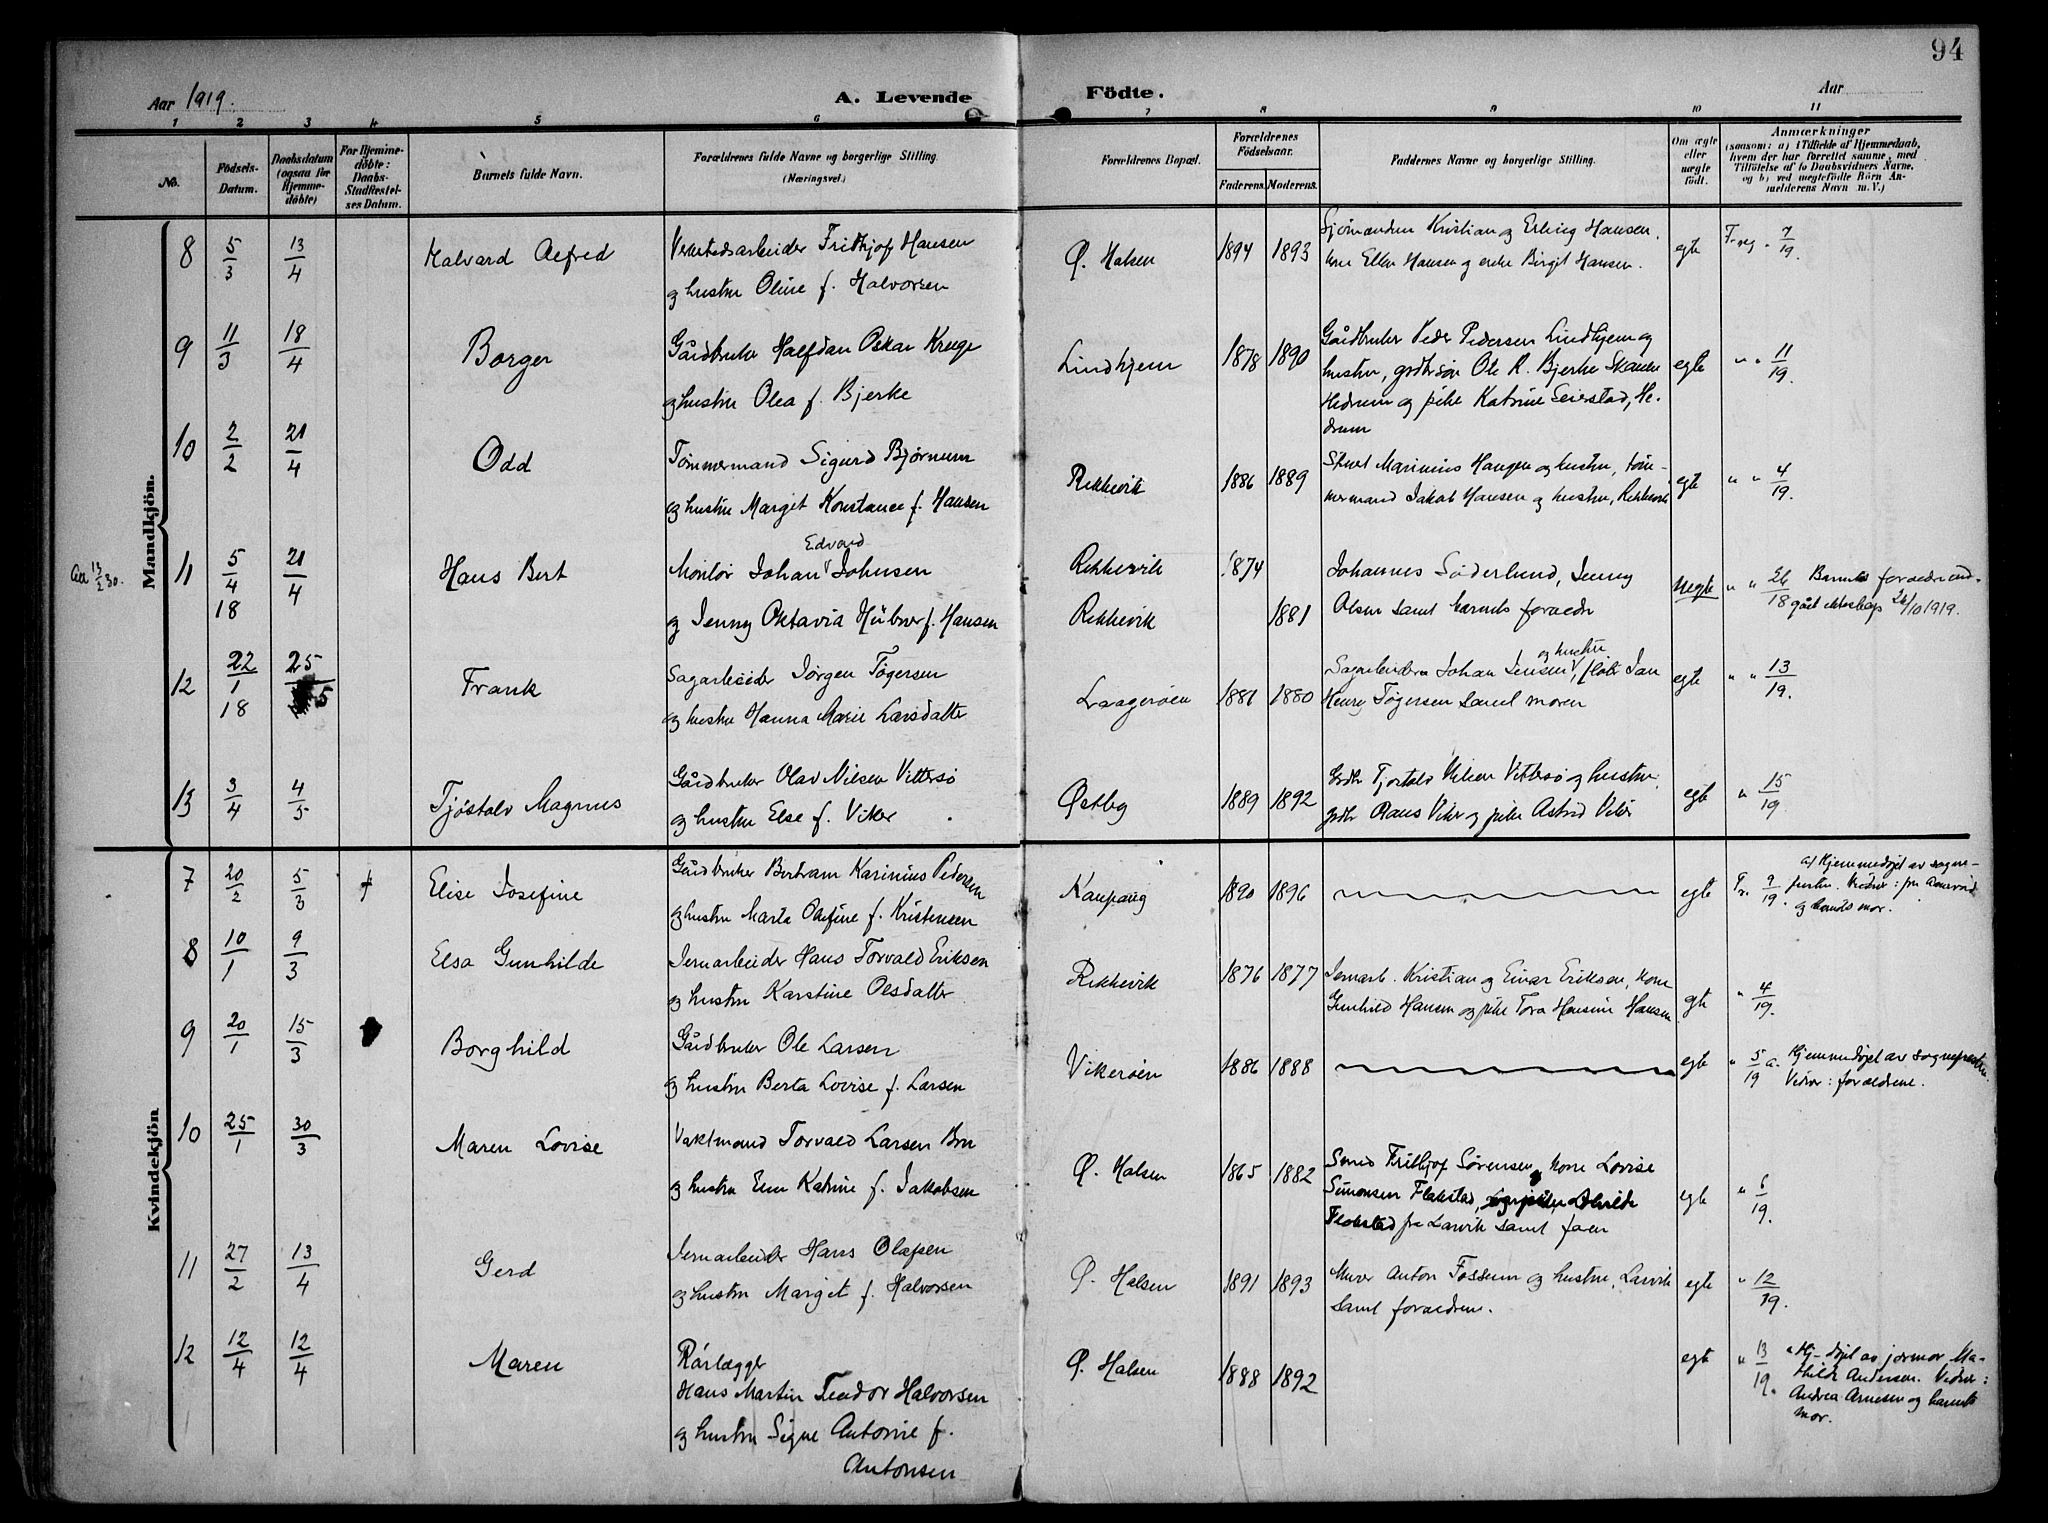 94
Aar 1919.
A. Levende
Födte.
Aar
1 2 3 4 5 6 7 8 9 10 11
No.
Födsels-
Datum.
Daabsdatum
(ogsaa for
Hjemme-
döbte)
For Hjemme-
döbte:
Daabs-
Stadfæstel-
ses Datum.
Barnets fulde Navn.
Forældrenes fulde Navne og borgerlige Stilling.
(Næringsvei.)
Forældrenes Bopæl.
Forældrenes
Födselsaar.
Faderens. Moderens.
Faddernes Navne og borgerlige Stilling.
Om ægte
eller
uægte
födt.
Anmærkninger
(saasom: a) i Tilfælde af Hjemmedaab,
hvem der har forrettet samme, med
Tilföielse af to Daabsvidners Navne,
og b) ved uegtefödte Börn An-
melderens Navn m. V.)
Mandkjön.
8 5/3 13/4 Halvard Alfred
Verkstedsarbeider Fridhjof Hansen
og hustru Oline f. Halvorsen
Ø. Halsen 1894 1893
Sjømanden Kristian og Erling Hansen,
kone Ellen Hansen og enke Birgit Hansen.
egte F. reg. 7/19.
9 11/3 18/4 Borger
Gårdbruker Halfdan Oskar Kruge
og hustru Olea f. Bjerke
Lindhjem 1878 1890
Gårdbruker Peder Pedersen Lindhjem og
hustru, grdbr.søn Ole R. Bjerke Skauen
Hedrum og pike Katrine Seierstad, He-
drum
egte " " 11/19.
10 2/2 21/4 Odd
Tømmermand Sigurd Bjørnum
og hustru Margit Konstance f. Hansen
Rekkevik 1886 1889
Marinius Haugen og hustru, tøm-
mermand Jakob Hansen og hustru, Rekkevik
egte " " 4/19.
Att 13/2 30.
11 5/4 18 21/4 Hans Bert
Montør Johan Edvard Johnsen
og Jenny Oktavia Hübner f. Hansen
Rekkevik 1874
Rekkevik 1881
Johannes Söderlund, Jenny
Olsen samt barnets forældre
uegte " " 26/18 Barnets forældre ind-
gått ekteskap 26/10 1919.
12 22/1 18 25/5 Frank
Sagarbeider Jørgen Tøgersen
og hustru Hanna Marie Larsdatter
Laagerøen 1881 1880
Sagarbeider Johan Jensen og hustru, Jan
Henry Tøgersen samt moren
egte " " 13/19.
13 3/4 4/5 Tjøstolv Magnus
Gårdbruker Olav Nilsen Vittersø
og hustru Else f. Viker
Østby 1889 1892
Grdbr Tjøstolv Nilsen Vittersø og hustru,
grdbr Viker og pike Astrid Viker
egte " 15/19.
Kvindekjön
7 20/2 5/3 † Elise Josefine
Gårdbruker Bertram Karinius Pedersen
og hustru Marta Olefine f. Kristensen
Kaupang 1890 1896
egte F.r. 9/19. a) Hjemmedøpt av sogne-
presten. Vidner: fru
og barnets mor.
8 10/1 9/3 Elsa Gunhilde
Jernarbeider Hans Torvald Eriksen
og hustru Karstine Olsdatter
Rekkevik 1876 1877
Jernarb. Kristian og Einar Eriksen, kone
Gunhild Hansen og pike Tora Hansine Hansen
egte " 4/19.
9 20/1 15/3 Borghild
Gårdbruker Ole Larsen
og hustru Berta Lovise f. Larsen
Vikerøen 1886 1888
egte " 5/19 a. Hjemmedøpt av sognepresten
Vidner: forældrene.
10 25/1 30/3 Maren Lovise
Vaktmand Torvald Larsen Bru
og hustru Elen Katrine f. Jakobsen
Ø. Halsen 1865 1882
Smed Fritjof Sørensen, kone Lovise
Simonsen Flakstad,
Flakstad fra Larvik samt faren
egte " 6/19.
11 27/2 13/4 Gerd
Jernarbeider Hans Olafsen
og hustru Margit f. Halvorsen
Ø. Halsen 1891 1893
Murer Anton Fossum og hustru, Larvik
samt forældrene.
egte " 12/19.
12 12/4 12/4 Maren
Rørlægger
Hans Martin Teodor Halvorsen
og hustru Signe Antonie f.
Antonsen
Ø. Halsen 1888 1892
egte " 13/19. a Hj-døpt av jormor Ma-
thilde Andersen. Vidner:
Andrea Arnesen og barnets
mor.